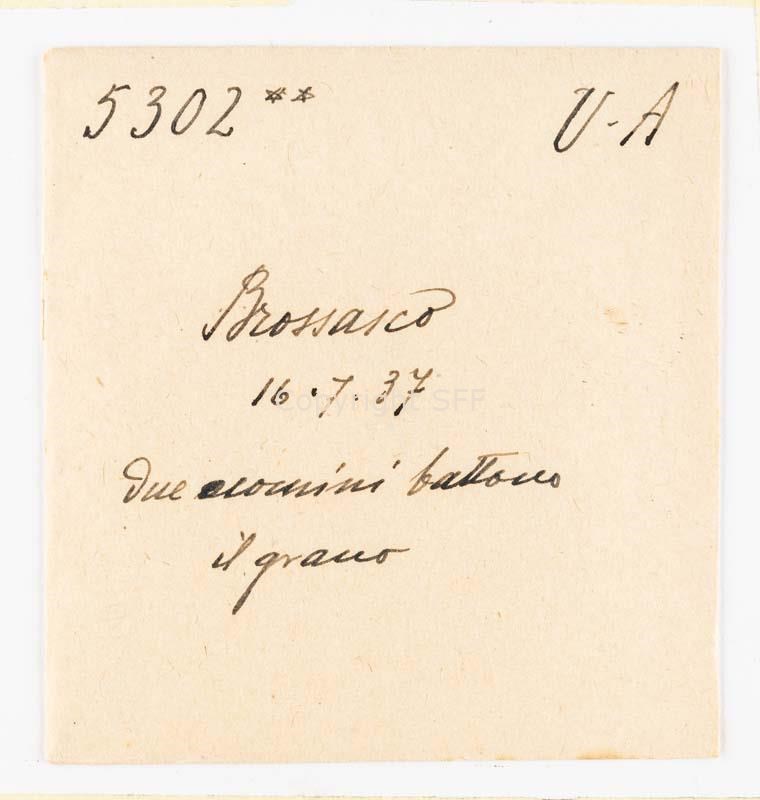 5302 ** U-A
Brossasco
16.7.37
Copyright SFF
due uomini battono
il grano